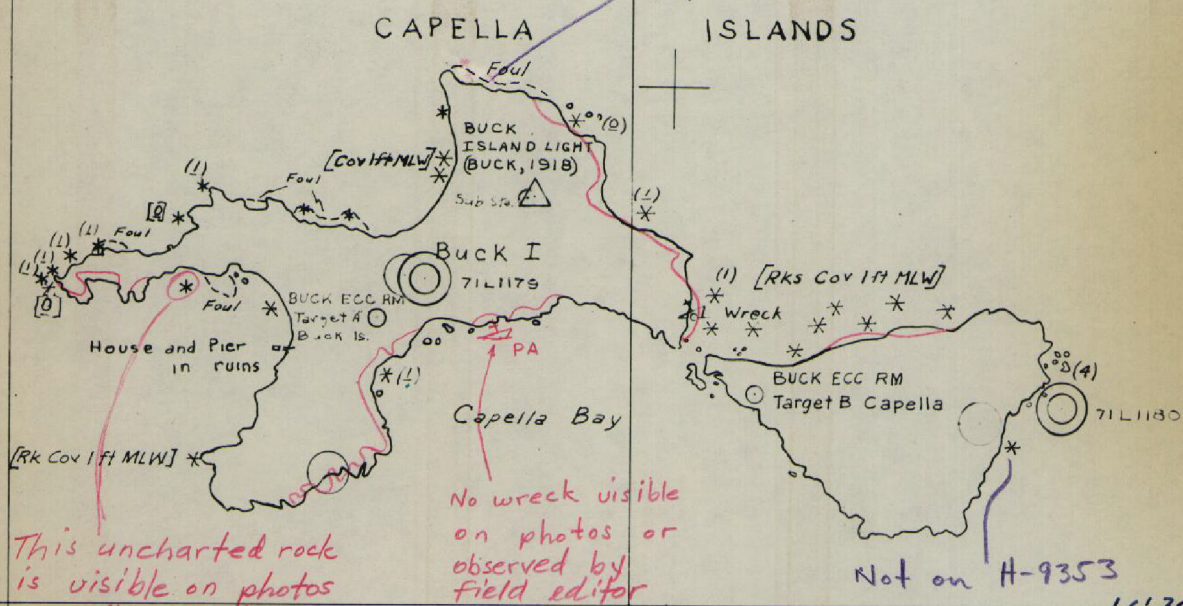 CAPELLA ISLANDS
Foul
(0)
BUCK
ISLAND LIGHT
(BUCK, 1918)
Sub Sta.
[Cov 1ft MLW]
(1)
Foul
(1)
[0]
Foul
(1)
(1)
(1)
(1)
[0]
Foul
Buck I
71L1179
BUCK ECC RM
Target A
Buck Is.
House and Pier
in ruins
(1)
PA
(1)
[Rks Cov 1ft MLW]
Wreck
(4)
BUCK ECC RM
Target B Capella
71L1180
Capella Bay
[Rk Cov 1ft MLW]
This uncharted rock
is visible on photos
No wreck visible
on photos or
observed by
field editor
Not on H-9353